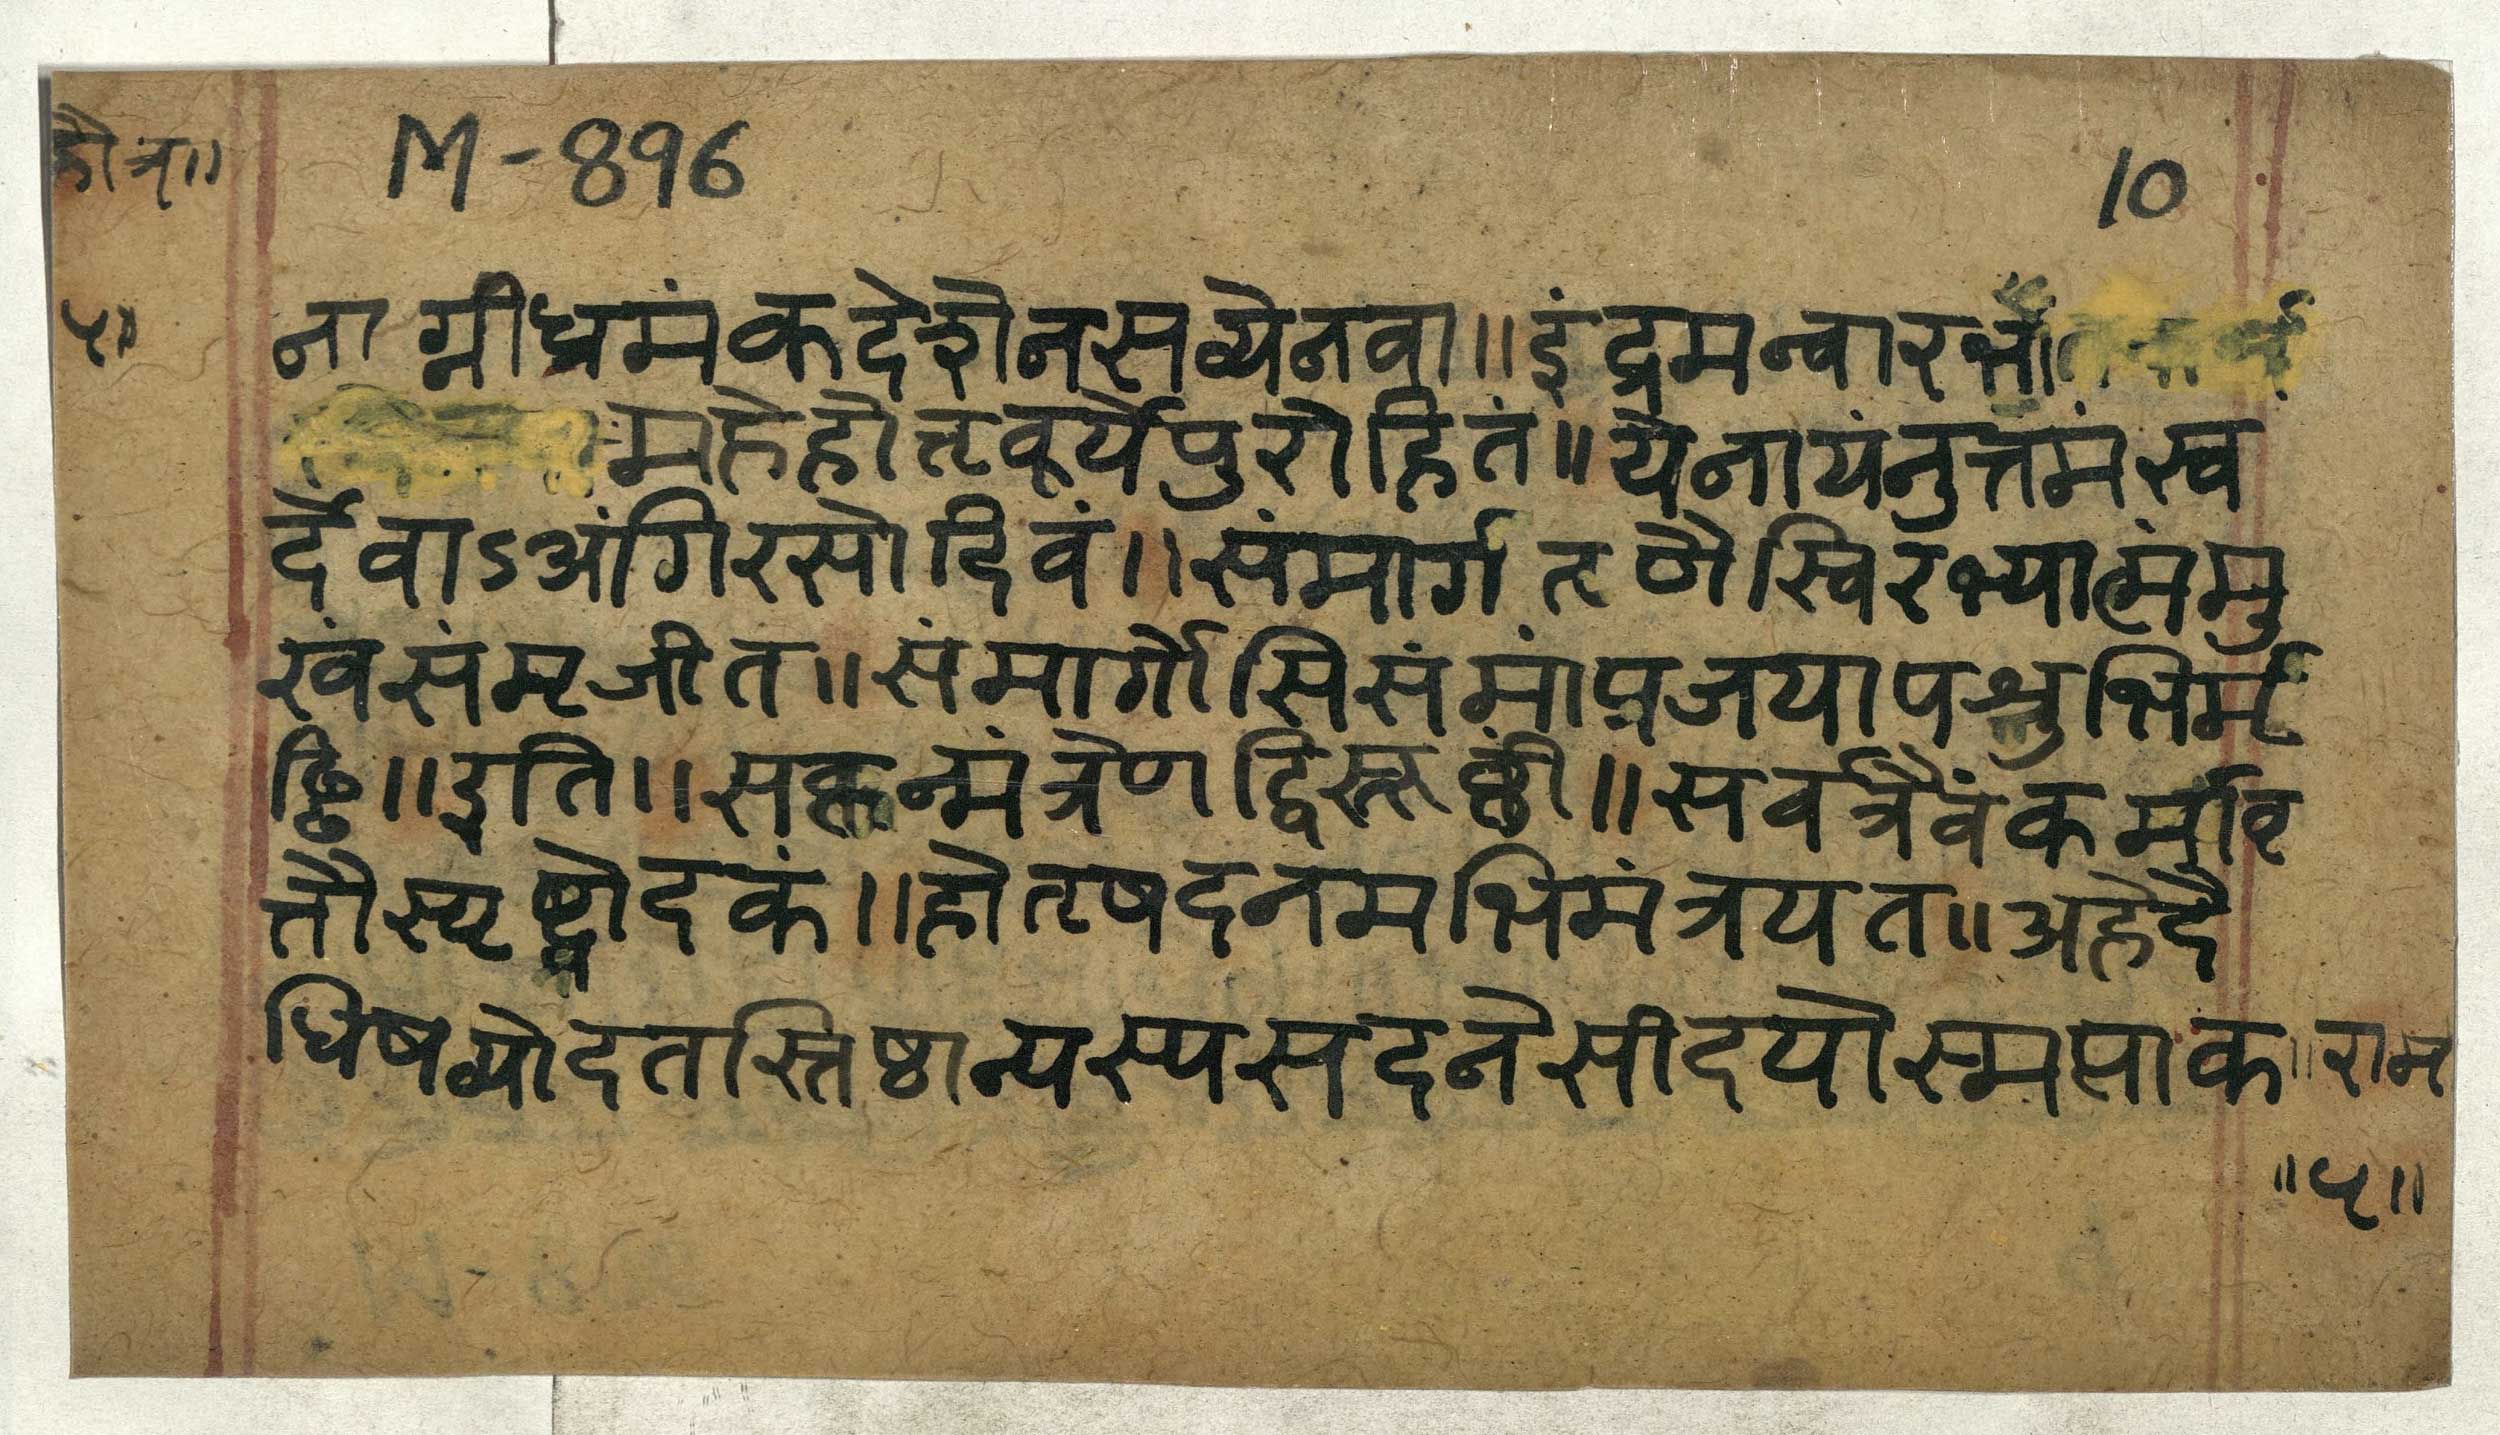 हौत्र॥
M-896
10
५॥
नाग्नीध्रमंकदेशेनसव्येनवा॥इंद्रमन्वारभ
महेहोतृवूर्येपुरोहितं॥येनायंनुत्तमंस्व
र्देवाऽअंगिरसोदिवं॥संमार्गतृणैस्त्रिरभ्यात्मंमु
खंसंमृजीत॥संमार्गोसिसंमांप्रजयापशुभिर्मृ
ड्ढि॥इति॥सकृन्मंत्रेणद्विस्तूष्णीं॥सर्वत्रैवंकर्मावृ
त्तौस्पृष्ट्वोदकं॥होतृषदनमभिमंत्रयत॥अहेदै
धिषव्योदतस्तिष्ठान्यस्यसदनेसीदयोस्मप्ताक॥राम
॥५॥